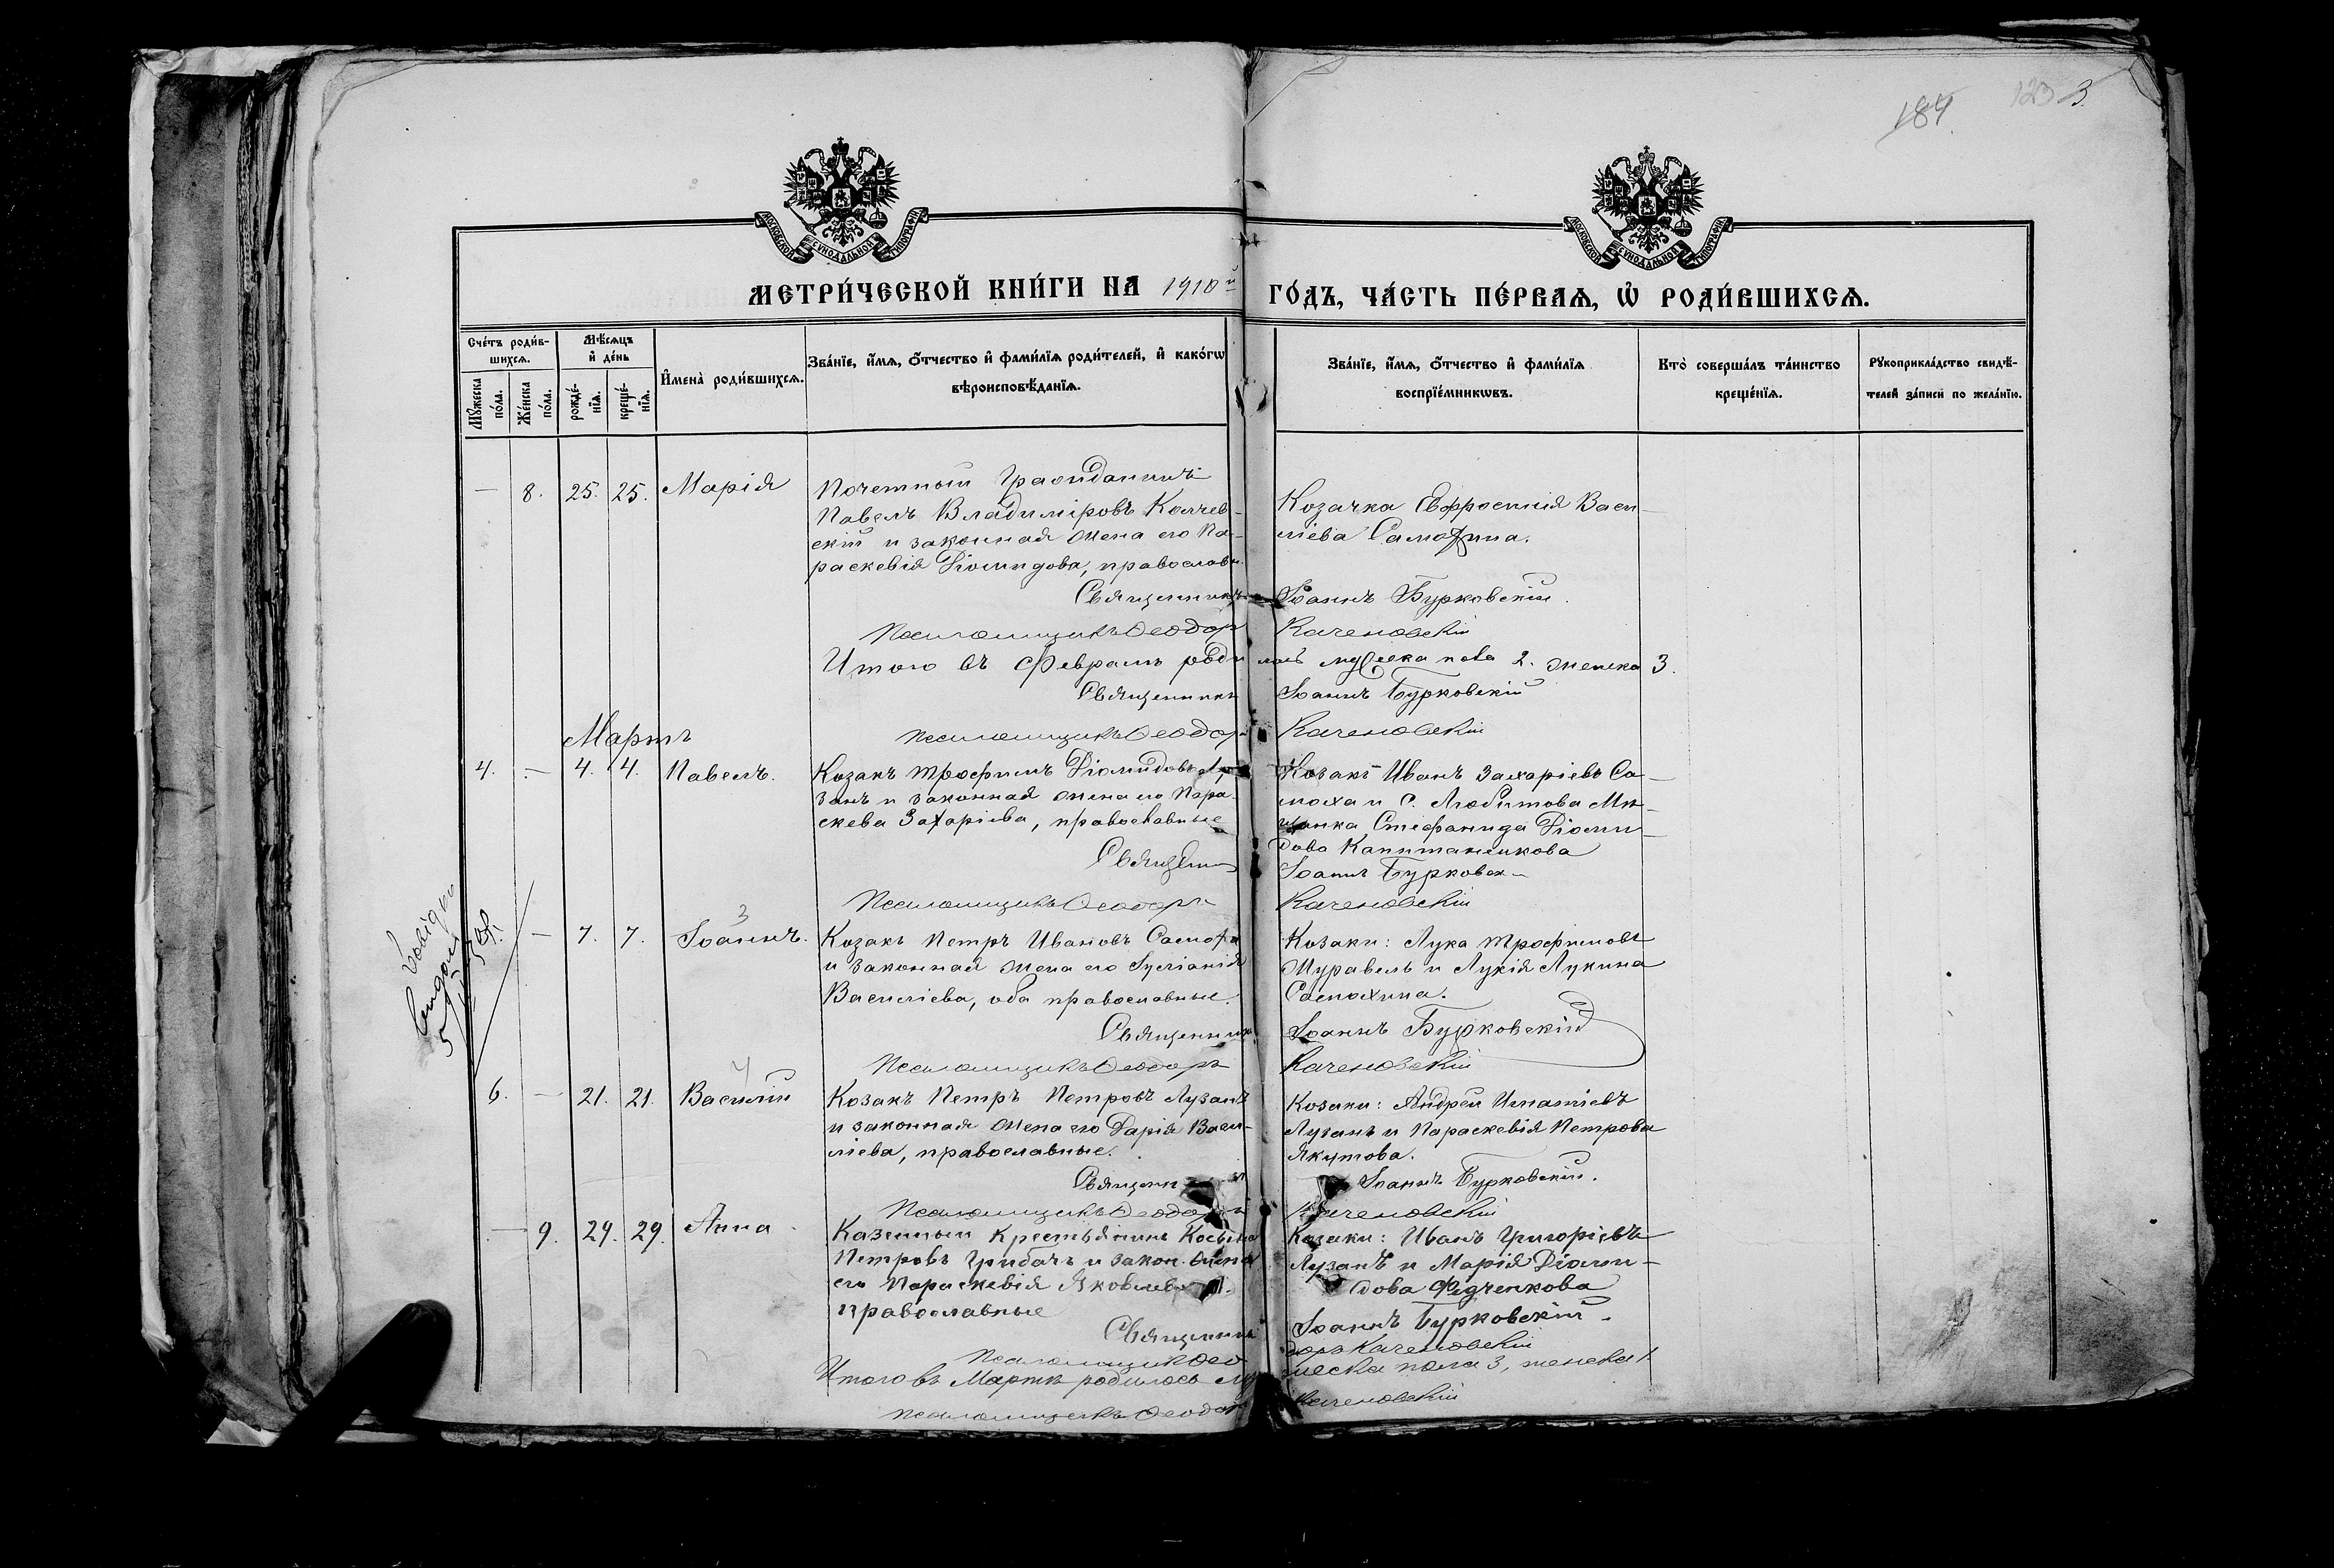 184
123
3
МОСКОВСКОЙ СѴНОДАЛЬНОЙ ТИПОГРАФІИ
МОСКОВСКОЙ СѴНОДАЛЬНОЙ ТИПОГРАФІИ
МЕТРИ́ЧЕСКОЙ КНИ́ГИ НА 1910й ГО́ДЪ, ЧА́СТЬ ПЕ́РВАѦ, Ѽ РОДИ́ВШИХСѦ.
Сче́тъ роди́в-
шихсѧ.
Мѣ́сѧцъ
и҆ де́нь
Мꙋ́жеска по́ла.
Же́нска по́ла.
рожде́-
нїѧ.
креще́-
нїѧ.
И҆мена̀ роди́вшихсѧ.
Зва́нїе, и҆́мѧ, ѻ҆́тчество и҆ фами́лїѧ роди́телей, и҆ како́гѡ
вѣроисповѣ́данїѧ.
Зва́нїе, и҆́мѧ, ѻ҆́тчество и҆ фами́лїѧ
воспрїе́мникѡвъ.
Кто̀ соверша́лъ та́инство
креще́нїѧ.
Рꙋкоприкла́дство свидѣ́-
телей за́писи по жела́нїю.
— 8. 25. 25. Марія
Почетный Гражданинъ
Павелъ Владиміровъ Колчев-
скій и законная жена его Па-
раскевія Діомидова, православн.
Козачка Евфросинія Васи-
ліева Самохина.
Священникъ Іоаннъ Бурковскій.
Псаломщикъ Ѳеодоръ Каченовскій
Итого въ Февралѣ родилось мужеска пола 2. женска 3.
Священникъ Іоаннъ Бурковскій
Псаломщикъ Ѳеодоръ Каченовскій
Мартъ
4. — 4. 4. Павелъ.
Козакъ Трофимъ Діомидовъ Лу-
занъ и законная жена его Пара-
скева Захаріева, православные
Козакъ Иванъ Захаріевъ Са-
моха и С. Любитова Мѣ-
щанка Стефанида Діоми-
дова Капитаненкова
Священник Іоаннъ Бурковск
Псаломщикъ Ѳеодоръ Каченовскій
— 7. 7. Іоаннъ.
3
Козакъ Петръ Ивановъ Самоха
и законная жена его Іуліанія
Василіева, оба православные.
Козаки: Лука Трофимовъ
Журавель и Лукія Лукина
Самохина.
Священникъ Іоаннъ Бурковскій
Псаломщикъ Ѳеодоръ Каченовскій
4
6. — 21. 21. Василій
Козакъ Петръ Петровъ Лузанъ
и законная жена его Дарія Васи-
ліева, православные.
Козаки: Андрей Игнатіевъ
Лузанъ и Параскевія Петрова
Якутова.
Священникъ Іоаннъ Бурковскій.
Псаломщикъ Ѳеодоръ Каченовскій
— 9. 29. 29. Анна
Казенный Крестьянинъ Косьма
Петровъ Грибачъ и закон. жена
его Параскевія Яковлева
православные
Козаки: Иванъ Григоріевъ
Лузанъ и Марія Діоми-
дова Федченкова
Священникъ Іоаннъ Бурковскій.
Псаломщикъ Ѳеодоръ Каченовскій
Итого въ Мартѣ родилось мужеска пола 3, женска 1.
Псаломщикъ Ѳеодоръ Каченовскій